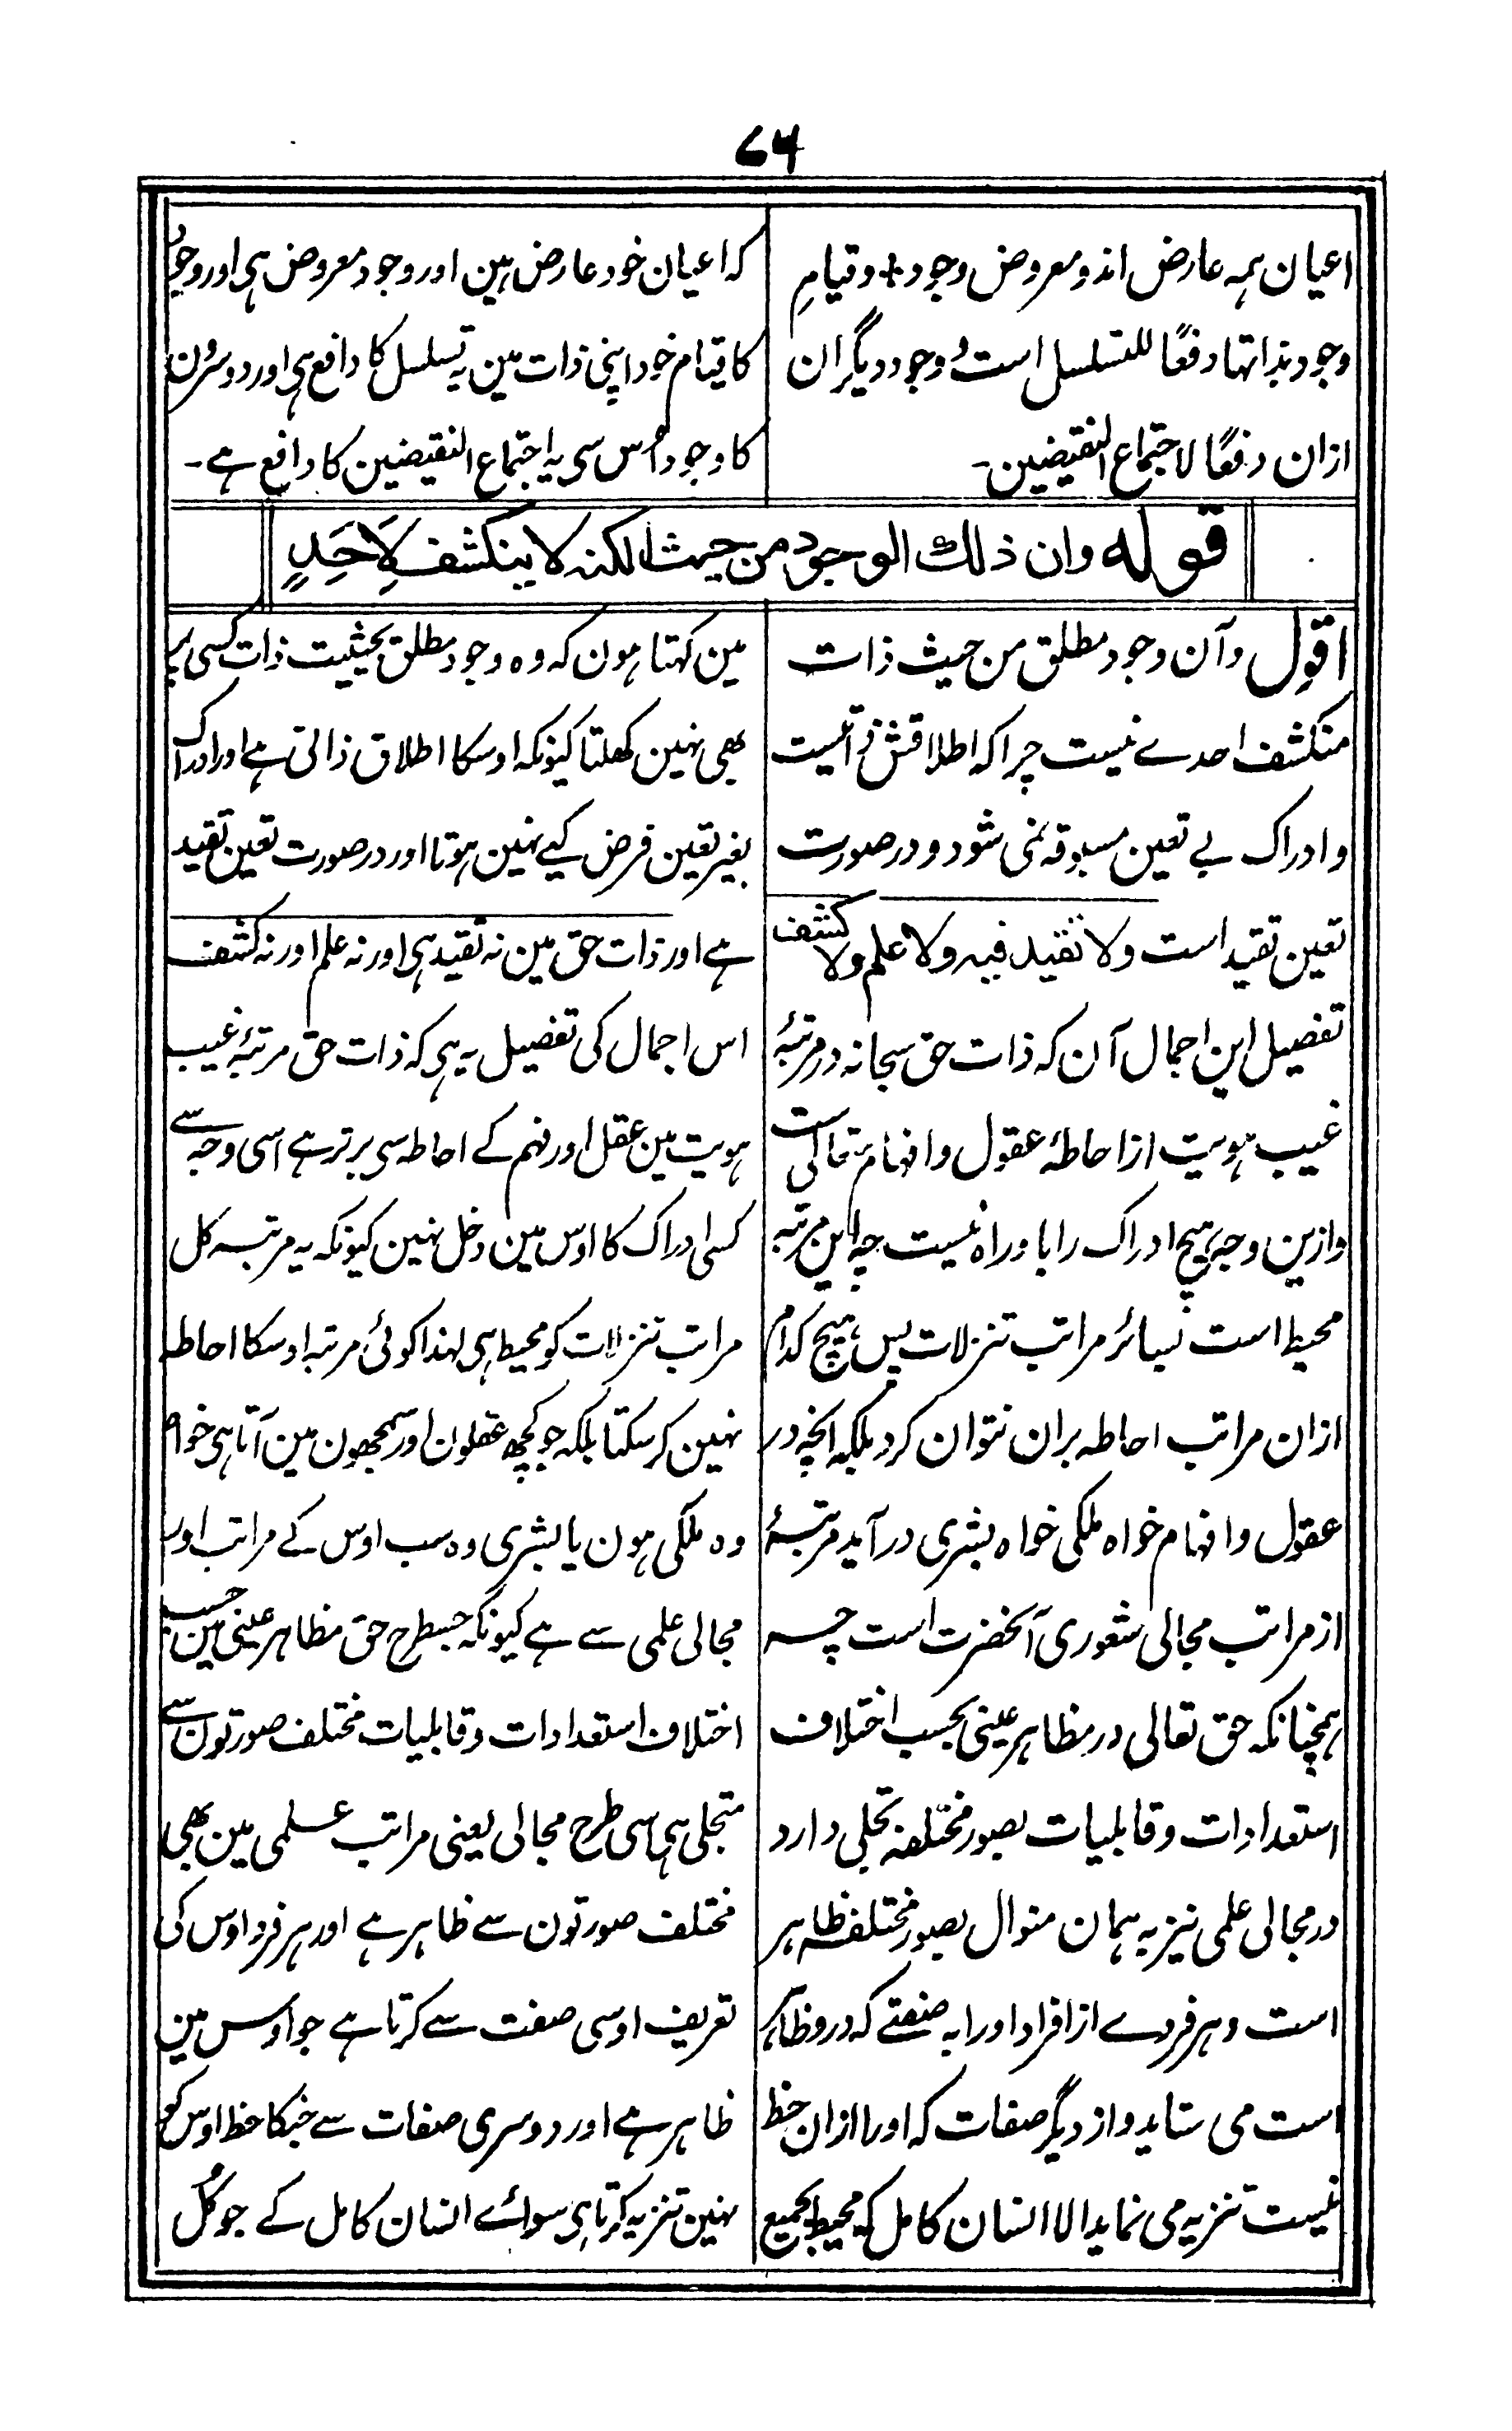 ۷۶
اعیان ہمہ عارض اند و معروض وجود + و قیامِ
وجود بذاتہا دفعًا للتسلسل است و وجود دیگران
ازان دفعًا لاجتماع النقیضین۔
کہ اعیان خود عارض ہین اور وجود معروض ہی اور وجود
کا قیام خود اپنی ذات مین یہ تسلسل کا دافع ہی اور دوسرون
کا وجود اُس سی یہ اجتماع النقیضین کا دافع ہے۔
قولہ وان ذلک الوجود من حیث الکنہ لا ینکشف لِاَحَدٍ
اقول و آن وجود مطلق من حیث ذات
منکشف احدے نیست چرا کہ اطلاقش ذاتیست
و ادراک بے تعین مسبوقہ نمی شود و در صورت
تعین تقید است ولا تقید فیہ ولا علم ولا کشف
تفصیل این اجمال آن کہ ذات حق سبحانہ در مرتبۂ
غیب ہویت از احاطۂ عقول و افہام متعالی ست
و ازین وجہ ہیچ ادراک را با و راہ نیست چہ این مرتبہ
محیط است بسائر مراتب تنزلات پس ہیچ کدام
ازان مراتب احاطہ بران نتوان کرد بلکہ انچہ در
عقول و افہام خواہ ملکی خواہ بشری در آید مرتبۂ
از مراتب مجالی شعوری آنحضرت است چہ
ہمچنانکہ حق تعالی در مظاہر عینی بحسب اختلاف
استعدادات و قابلیات بصور مختلفہ تجلی دارد
در مجالی علمی نیز بہ ہمان منوال بصور مختلفہ ظاہر
است و ہر فردے از افراد او را بہ صفتے کہ در و ظاہر
است می ستاید و از دیگر صفات کہ او را ازان حظ
نیست تنزیہ می نماید الا انسان کامل کہ محیط بجمیع
مین کہتا ہون کہ وہ وجود مطلق بحیثیت ذات کسی پر
بھی نہین کھلتا کیونکہ اوسکا اطلاق ذاتی ہے اور ادراک
بغیر تعین فرض کیے نہین ہوتا اور در صورت تعین تقید
ہے اور ذات حق مین نہ تقید ہی اور نہ علم اور نہ کشف
اس اجمال کی تفصیل یہ ہی کہ ذات حق مرتبۂ غیب
ہویت مین عقل اور فہم کے احاطہ سی برتر ہے اسی وجہ سے
کسی ادراک کا اوس مین دخل نہین کیونکہ یہ مرتبہ کل
مراتب تنزلات کو محیط ہی لہذا کوئی مرتبہ اوسکا احاطہ
نہین کر سکتا بلکہ جو کچھ عقلون اور سمجھون مین آتا ہی خواہ
وہ ملکی ہون یا بشری وہ سب اوس کے مراتب اور
مجالی علمی سے ہے کیونکہ جسطرح حق مظاہر عینی مین بحسب
اختلاف استعدادات و قابلیات مختلف صورتون سے
متجلی ہی اسی طرح مجالی یعنی مراتب علمی مین بھی
مختلف صورتون سے ظاہر ہے اور ہر فرد اوس کی
تعریف اوسی صفت سے کرتا ہے جو اوس مین
ظاہر ہے اور دوسری صفات سے جنکا حظ اوس کو
نہین تنزیہ کرتا ہی سوائے انسان کامل کے جو کُل